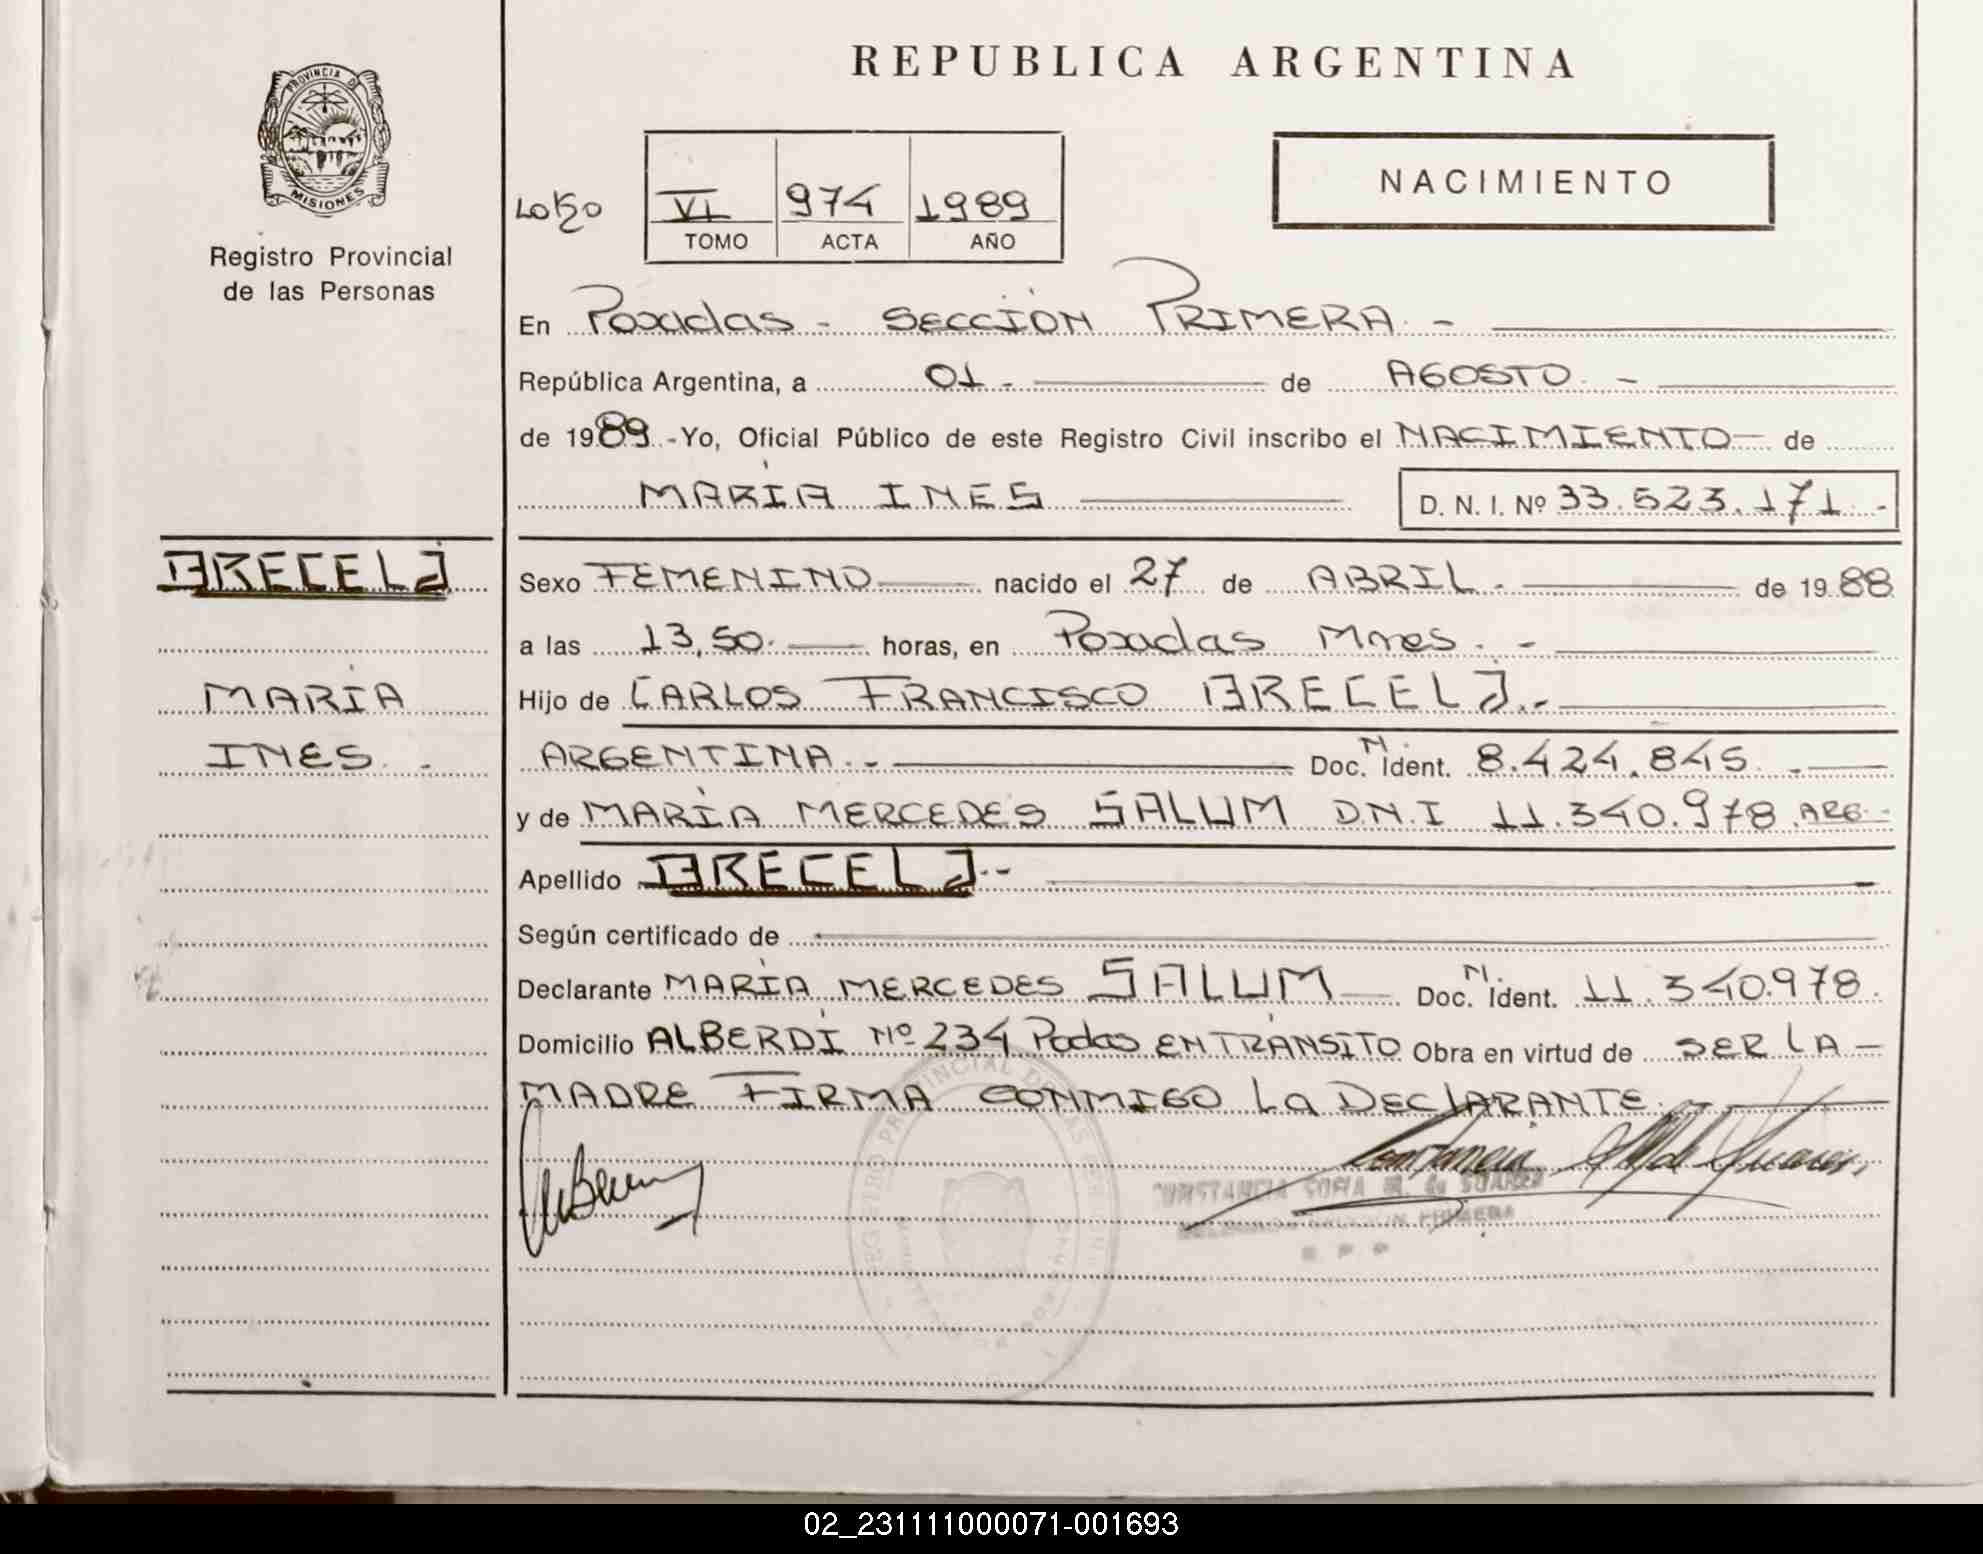 REPUBLICA ARGENTINA
PROVINCIA DE
MISIONES
Registro Provincial
de las Personas
VI 974 1989
TOMO ACTA AÑO
NACIMIENTO
En Posadas - SECCIÓN PRIMERA -
República Argentina, a 01 - de AGOSTO -
de 1989 - Yo, Oficial Público de este Registro Civil inscribo el NACIMIENTO de
MARÍA INES D. N. I. Nº 33.523.171 -
BRECELJ
MARÍA
INES -
Sexo FEMENINO nacido el 27 de ABRIL - de 1988
a las 13,50 horas, en Posadas Mnes. -
Hijo de CARLOS FRANCISCO BRECELJ.-
ARGENTINA.- Doc. N. Ident. 8.424.845 -
y de MARÍA MERCEDES SALUM D.N.I 11.340.978 ARG-
Apellido BRECELJ.-
Según certificado de
Declarante MARÍA MERCEDES SALUM Doc. N. Ident. 11.340.978.
Domicilio ALBERDI Nº 234 Podas EN TRÁNSITO Obra en virtud de SER LA -
MADRE FIRMA CONMIGO La DECLARANTE.
CONSTANCIA SOFIA M. de SUAREZ
02_231111000071-001693